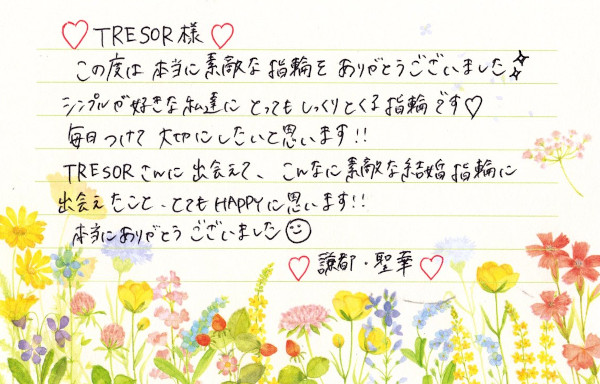 ♡TRESOR様♡
この度は本当に素敵な指輪をありがとうございました
シンプルが好きな私達にとってもしっくりとくる指輪です♡
毎日つけて大切にしたいと思います!!
TRESORさんに出会えて、こんなに素敵な結婚指輪に
出会えたこと、とてもHAPPYに思います!!
本当にありがとうございました☺
♡謙都・聖華♡